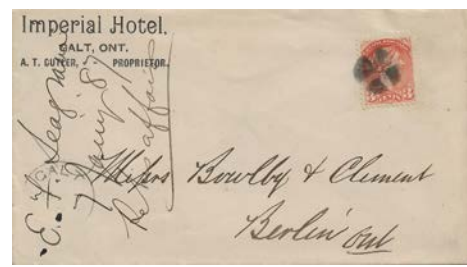 Imperial Hotel.
GALT, ONT.
A. T. GUTLER, PROPRIETOR.
E. F. Seagram
7 Jany 87
Re his affairs
GALT
3 CENTS 3
Messrs Bowlby & Clement
Berlin Ont